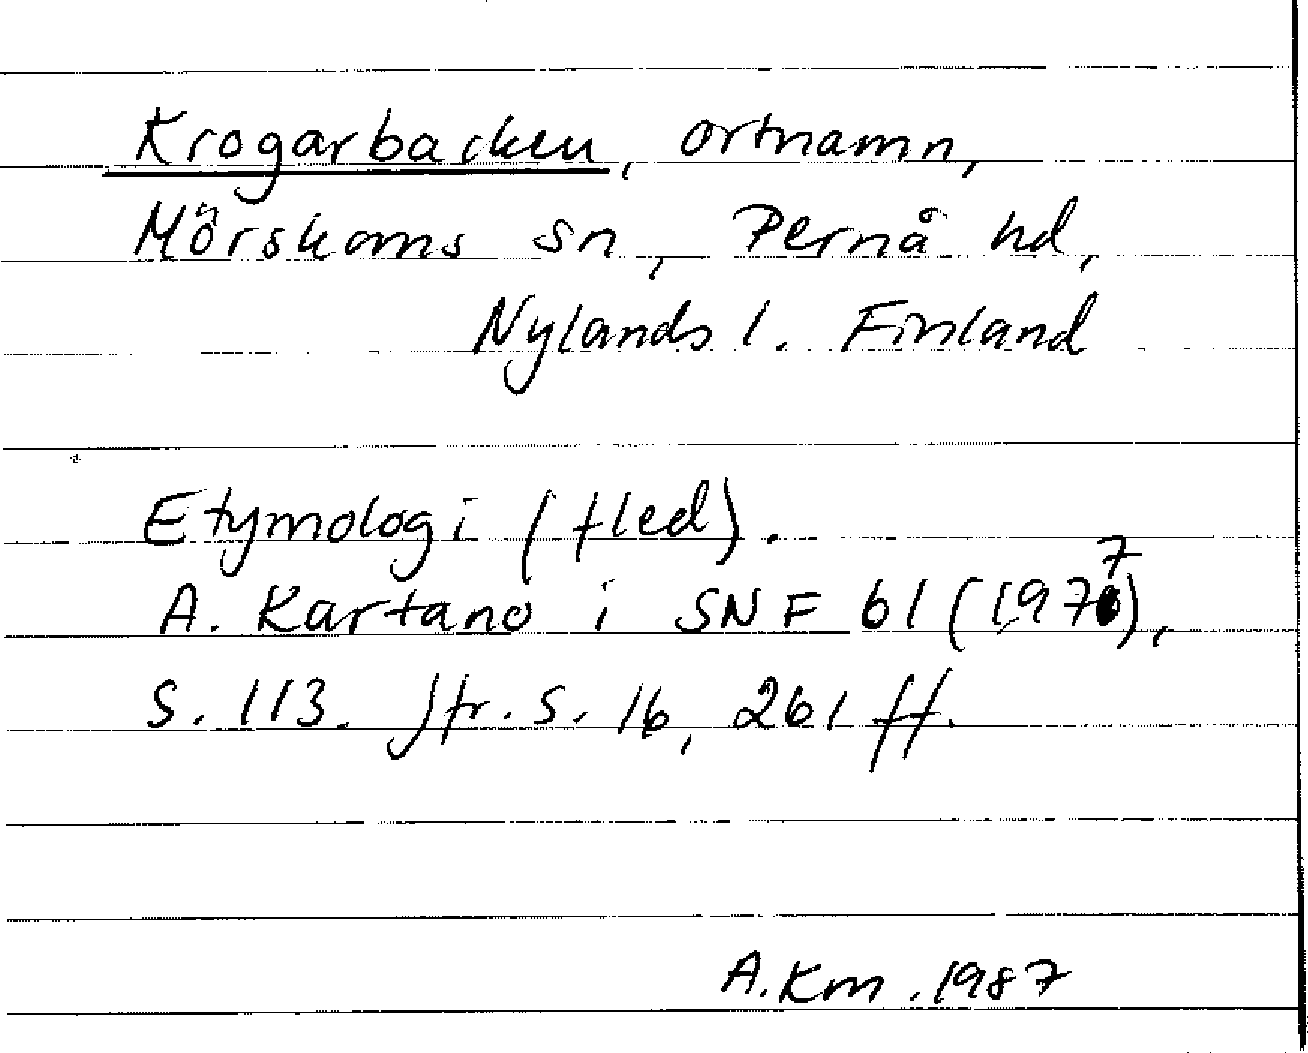 Krogarbacken, ortnamn,
Mörskoms sn, Pernå hd,
Nylands l. Finland
Etymologi (fled).
A. Kartano i SNF 61 (1977),
S. 113. Jfr. s. 16, 261 ff.
A.Km. 1987